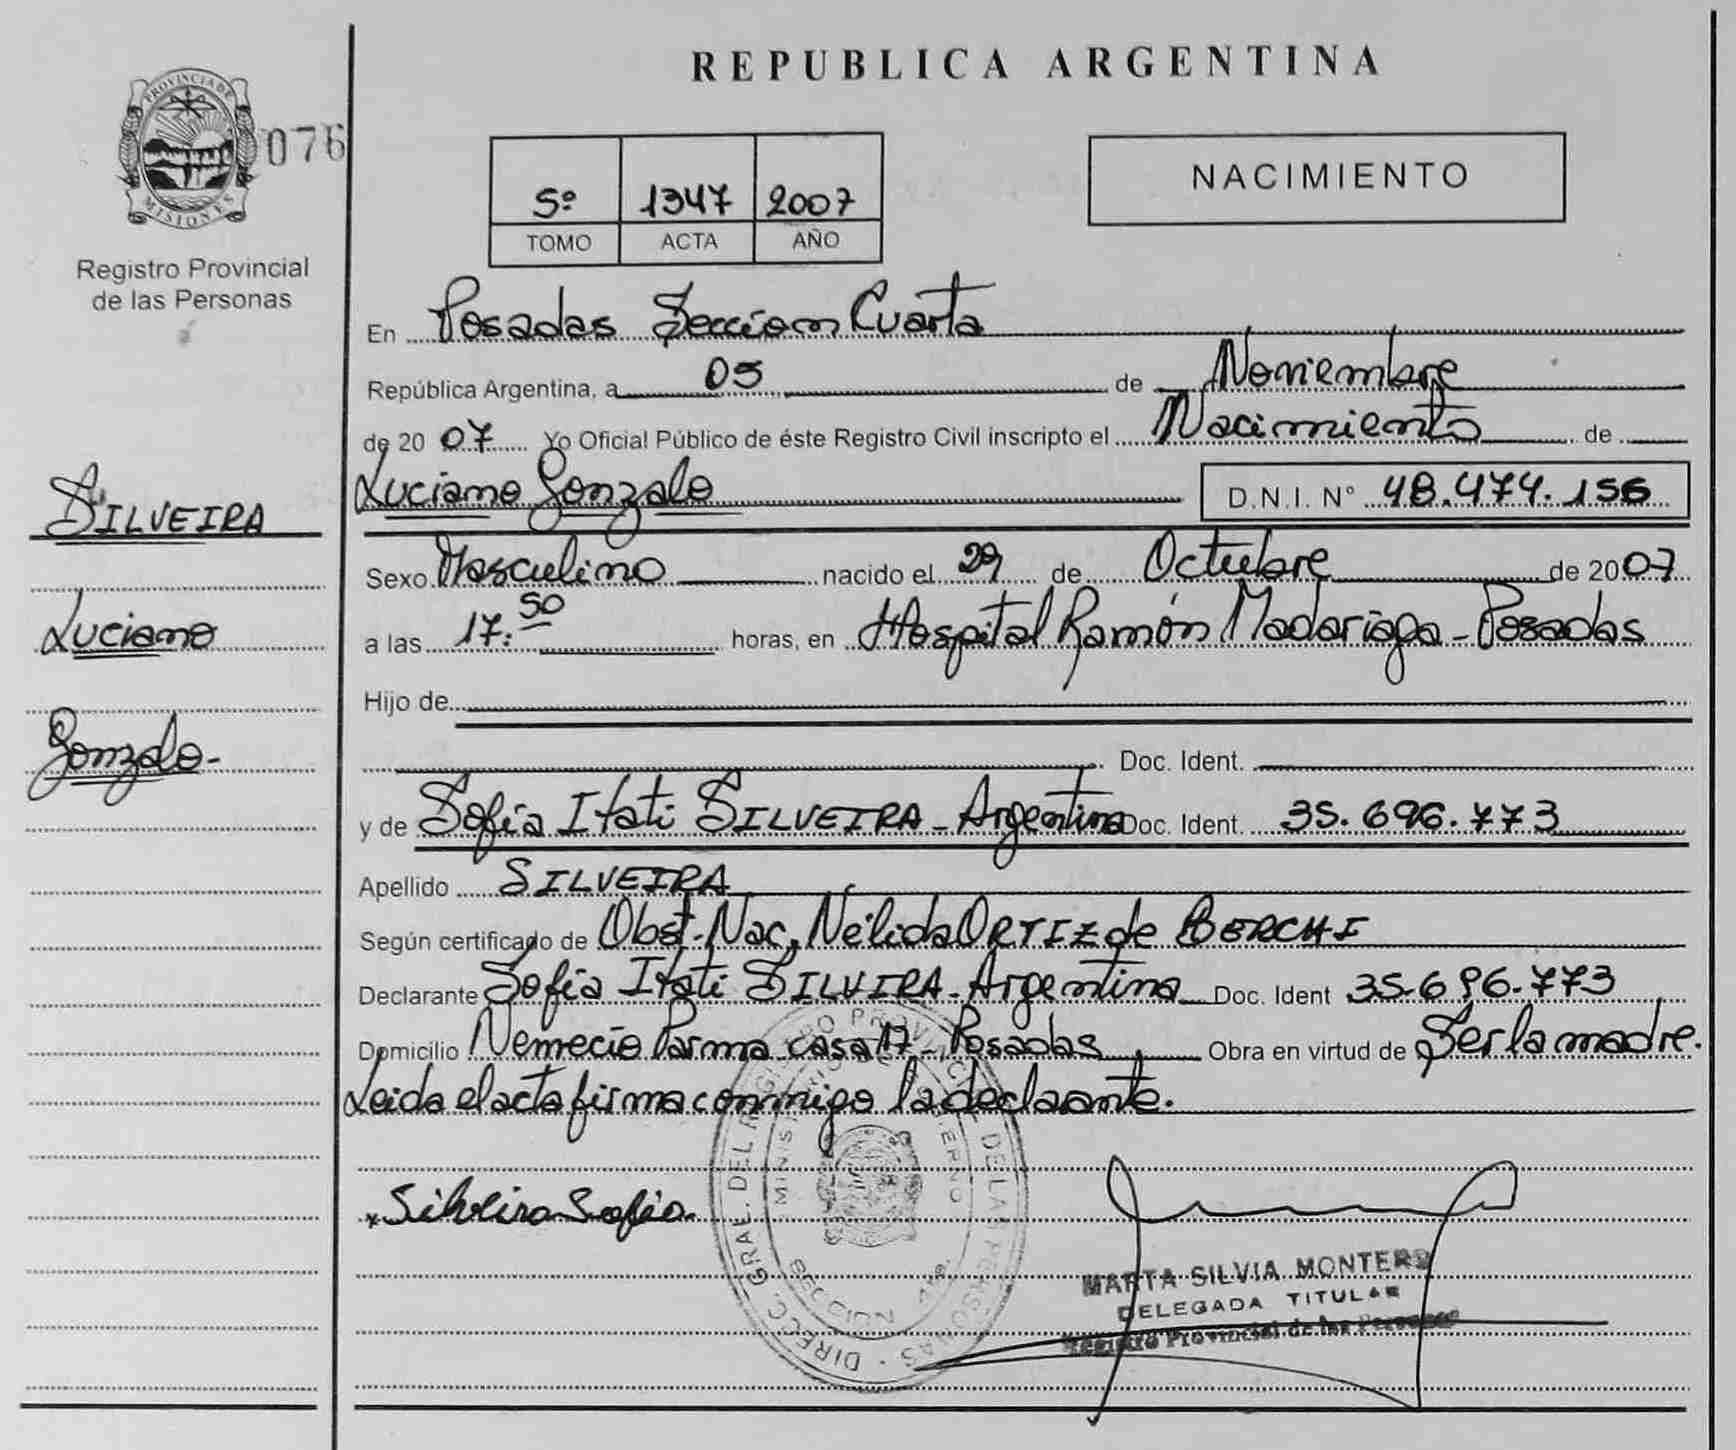 REPUBLICA ARGENTINA
PROVINCIA DE
MISIONES
076
Registro Provincial
de las Personas
5º 1347 2007
TOMO ACTA AÑO
NACIMIENTO
SILVEIRA
Luciano
Gonzalo-
En Posadas Seccion Cuarta
República Argentina, a 05 de Noviembre
de 20 07 Yo Oficial Público de éste Registro Civil inscripto el Nacimiento de
Luciano Gonzalo D.N.I. N° 48.474.156
Sexo Masculino nacido el 29 de Octubre de 2007
a las 17:50 horas, en Hospital Ramón Madariaga - Posadas
Hijo de
Doc. Ident.
y de Sofia Itati SILVEIRA - Argentina Doc. Ident. 35.696.773
Apellido SILVEIRA
Según certificado de Obst. Nac. Nélida ORTIZ de BERCHI
Declarante Sofia Itati SILVIRA - Argentina Doc. Ident 35.696.773
Domicilio Nemecio Parma casa 17 - Posadas Obra en virtud de Ser la madre.
Leida el acta firma conmigo la declarante.
Silveira Sofia
DIRECC. GRAL. DEL REGISTRO PROVINCIAL DE LAS PERSONAS
MINISTERIO DE GOBIERNO
MARTA SILVIA MONTERO
DELEGADA TITULAR
Registro Provincial de las Personas